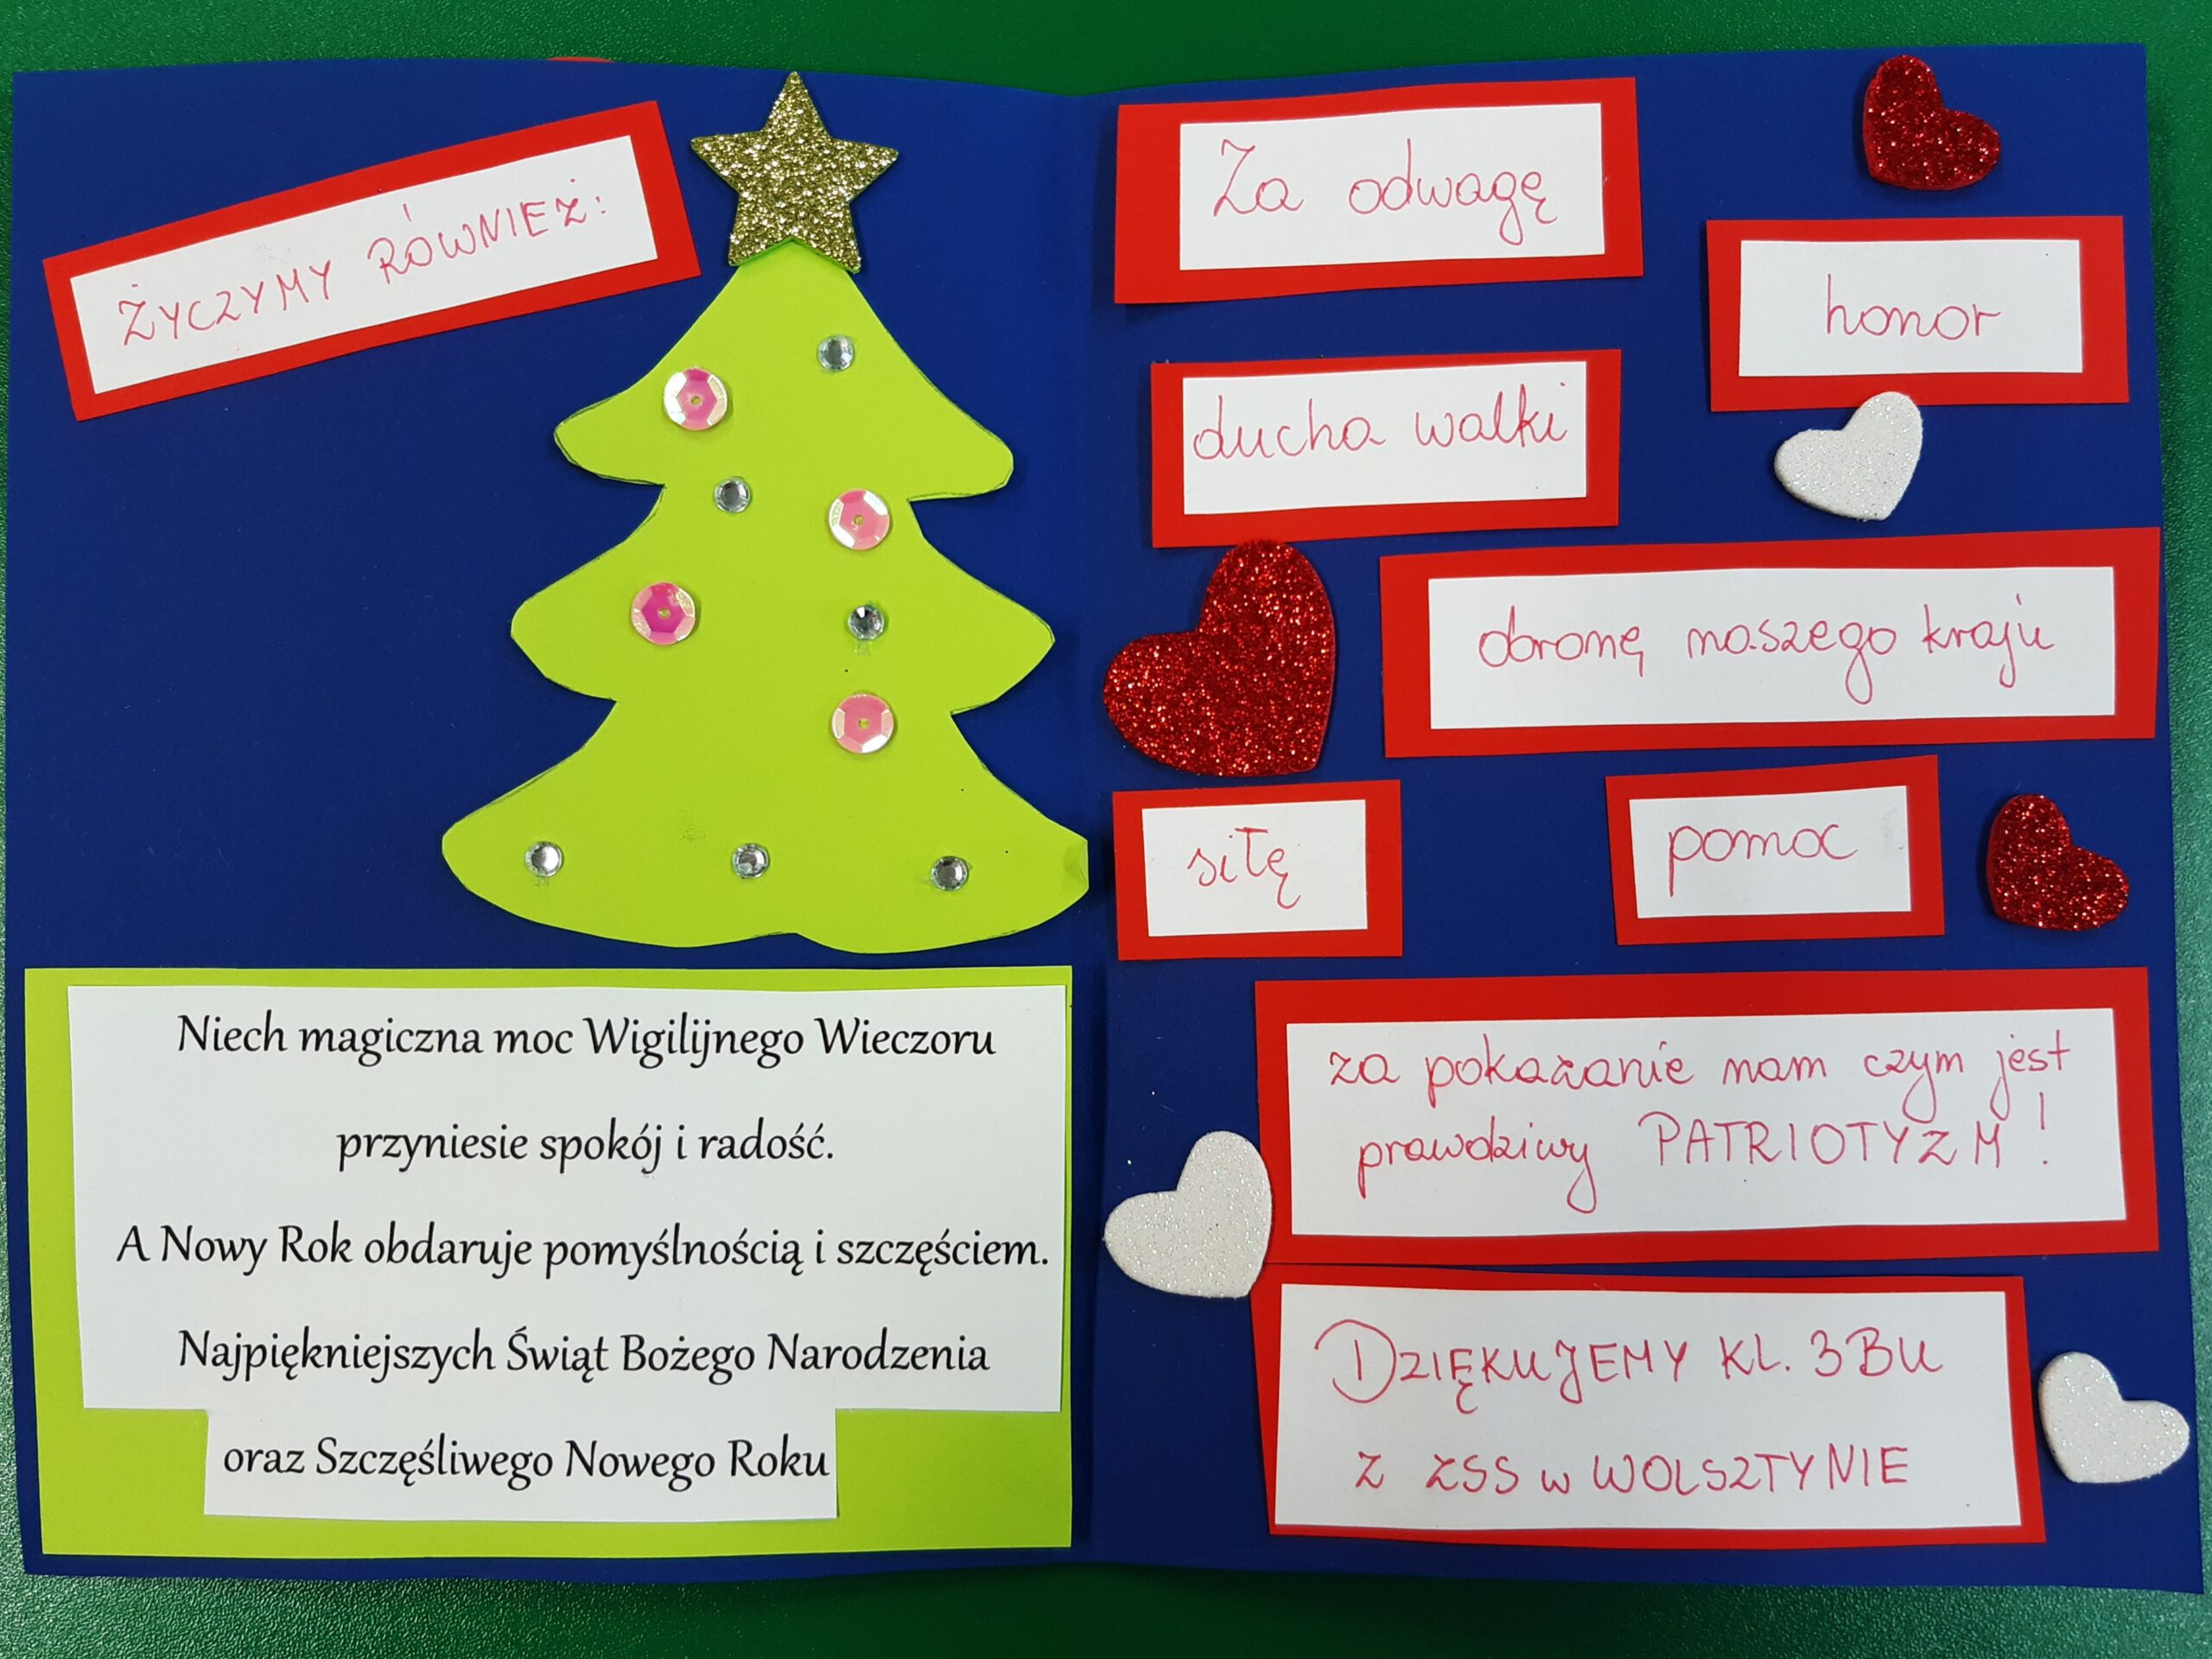 ŻYCZYMY RÓWNIEŻ:
Niech magiczna moc Wigilijnego Wieczoru
przyniesie spokój i radość.
A Nowy Rok obdaruje pomyślnością i szczęściem.
Najpiękniejszych Świąt Bożego Narodzenia
oraz Szczęśliwego Nowego Roku
Za odwagę
honor
ducha walki
obronę naszego kraju
siłę
pomoc
za pokazanie nam czym jest
prawdziwy PATRIOTYZM!
DZIĘKUJEMY KL. 3BU
Z ZSS w WOLSZTYNIE